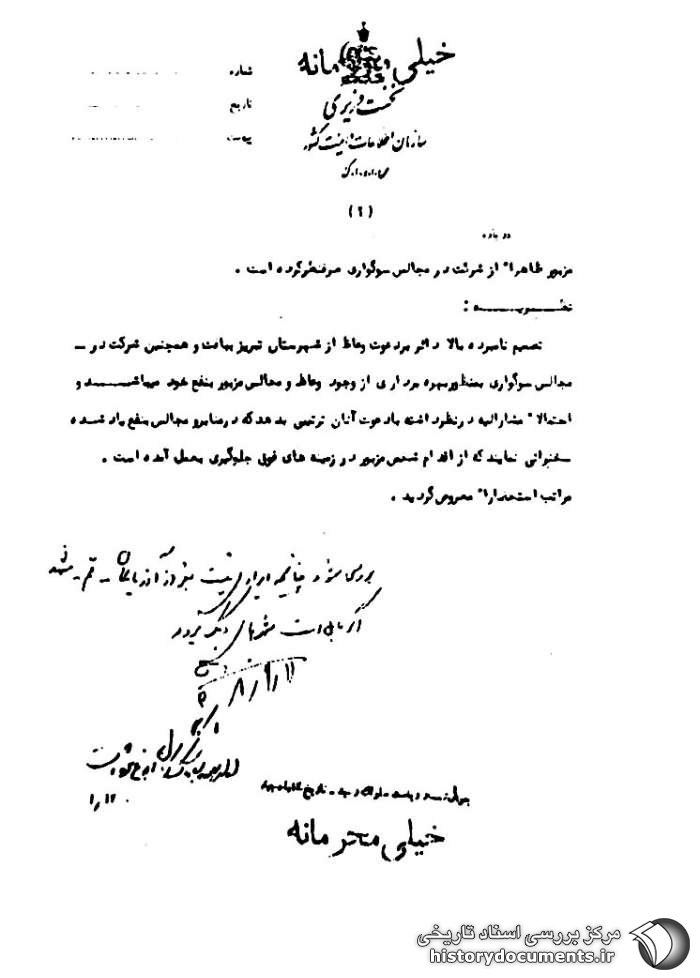 خیلی محرمانه
شماره
نخست وزیری
تاریخ
سازمان اطلاعات و امنیت کشور
پیوست
س.ا.و.ا.ک
(۲)
درباره
مزبور ظاهرا" از شرکت در مجالس سوگواری صرفنظر کرده است .
نظریه :
تصمیم نامبرده بالا دائر بر دعوت وعاظ از شهرستان تبریز و همچنین شرکت در ـ
مجالس سوگواری بمنظور بهره برداری از وجود وعاظ و مجالس مزبور بنفع خود میباشد و
احتمالا" مشارالیه در نظر داشته با دعوت آنان ترتیبی بدهد که در منابر و مجالس بنفع یاد شده
سخنرانی نمایند که از اقدام شخص مزبور در زمینه های فوق جلوگیری بعمل آمده است .
مراتب استحضارا" معروض گردید .
بررسی شود چنانچه ایرادی نیست بغیر از آذربایجان ـ قم ـ مشهد
اگر مایل است شهرهای دیگر برود
خیلی محرمانه
مرکز بررسی اسناد تاریخی
historydocuments.ir